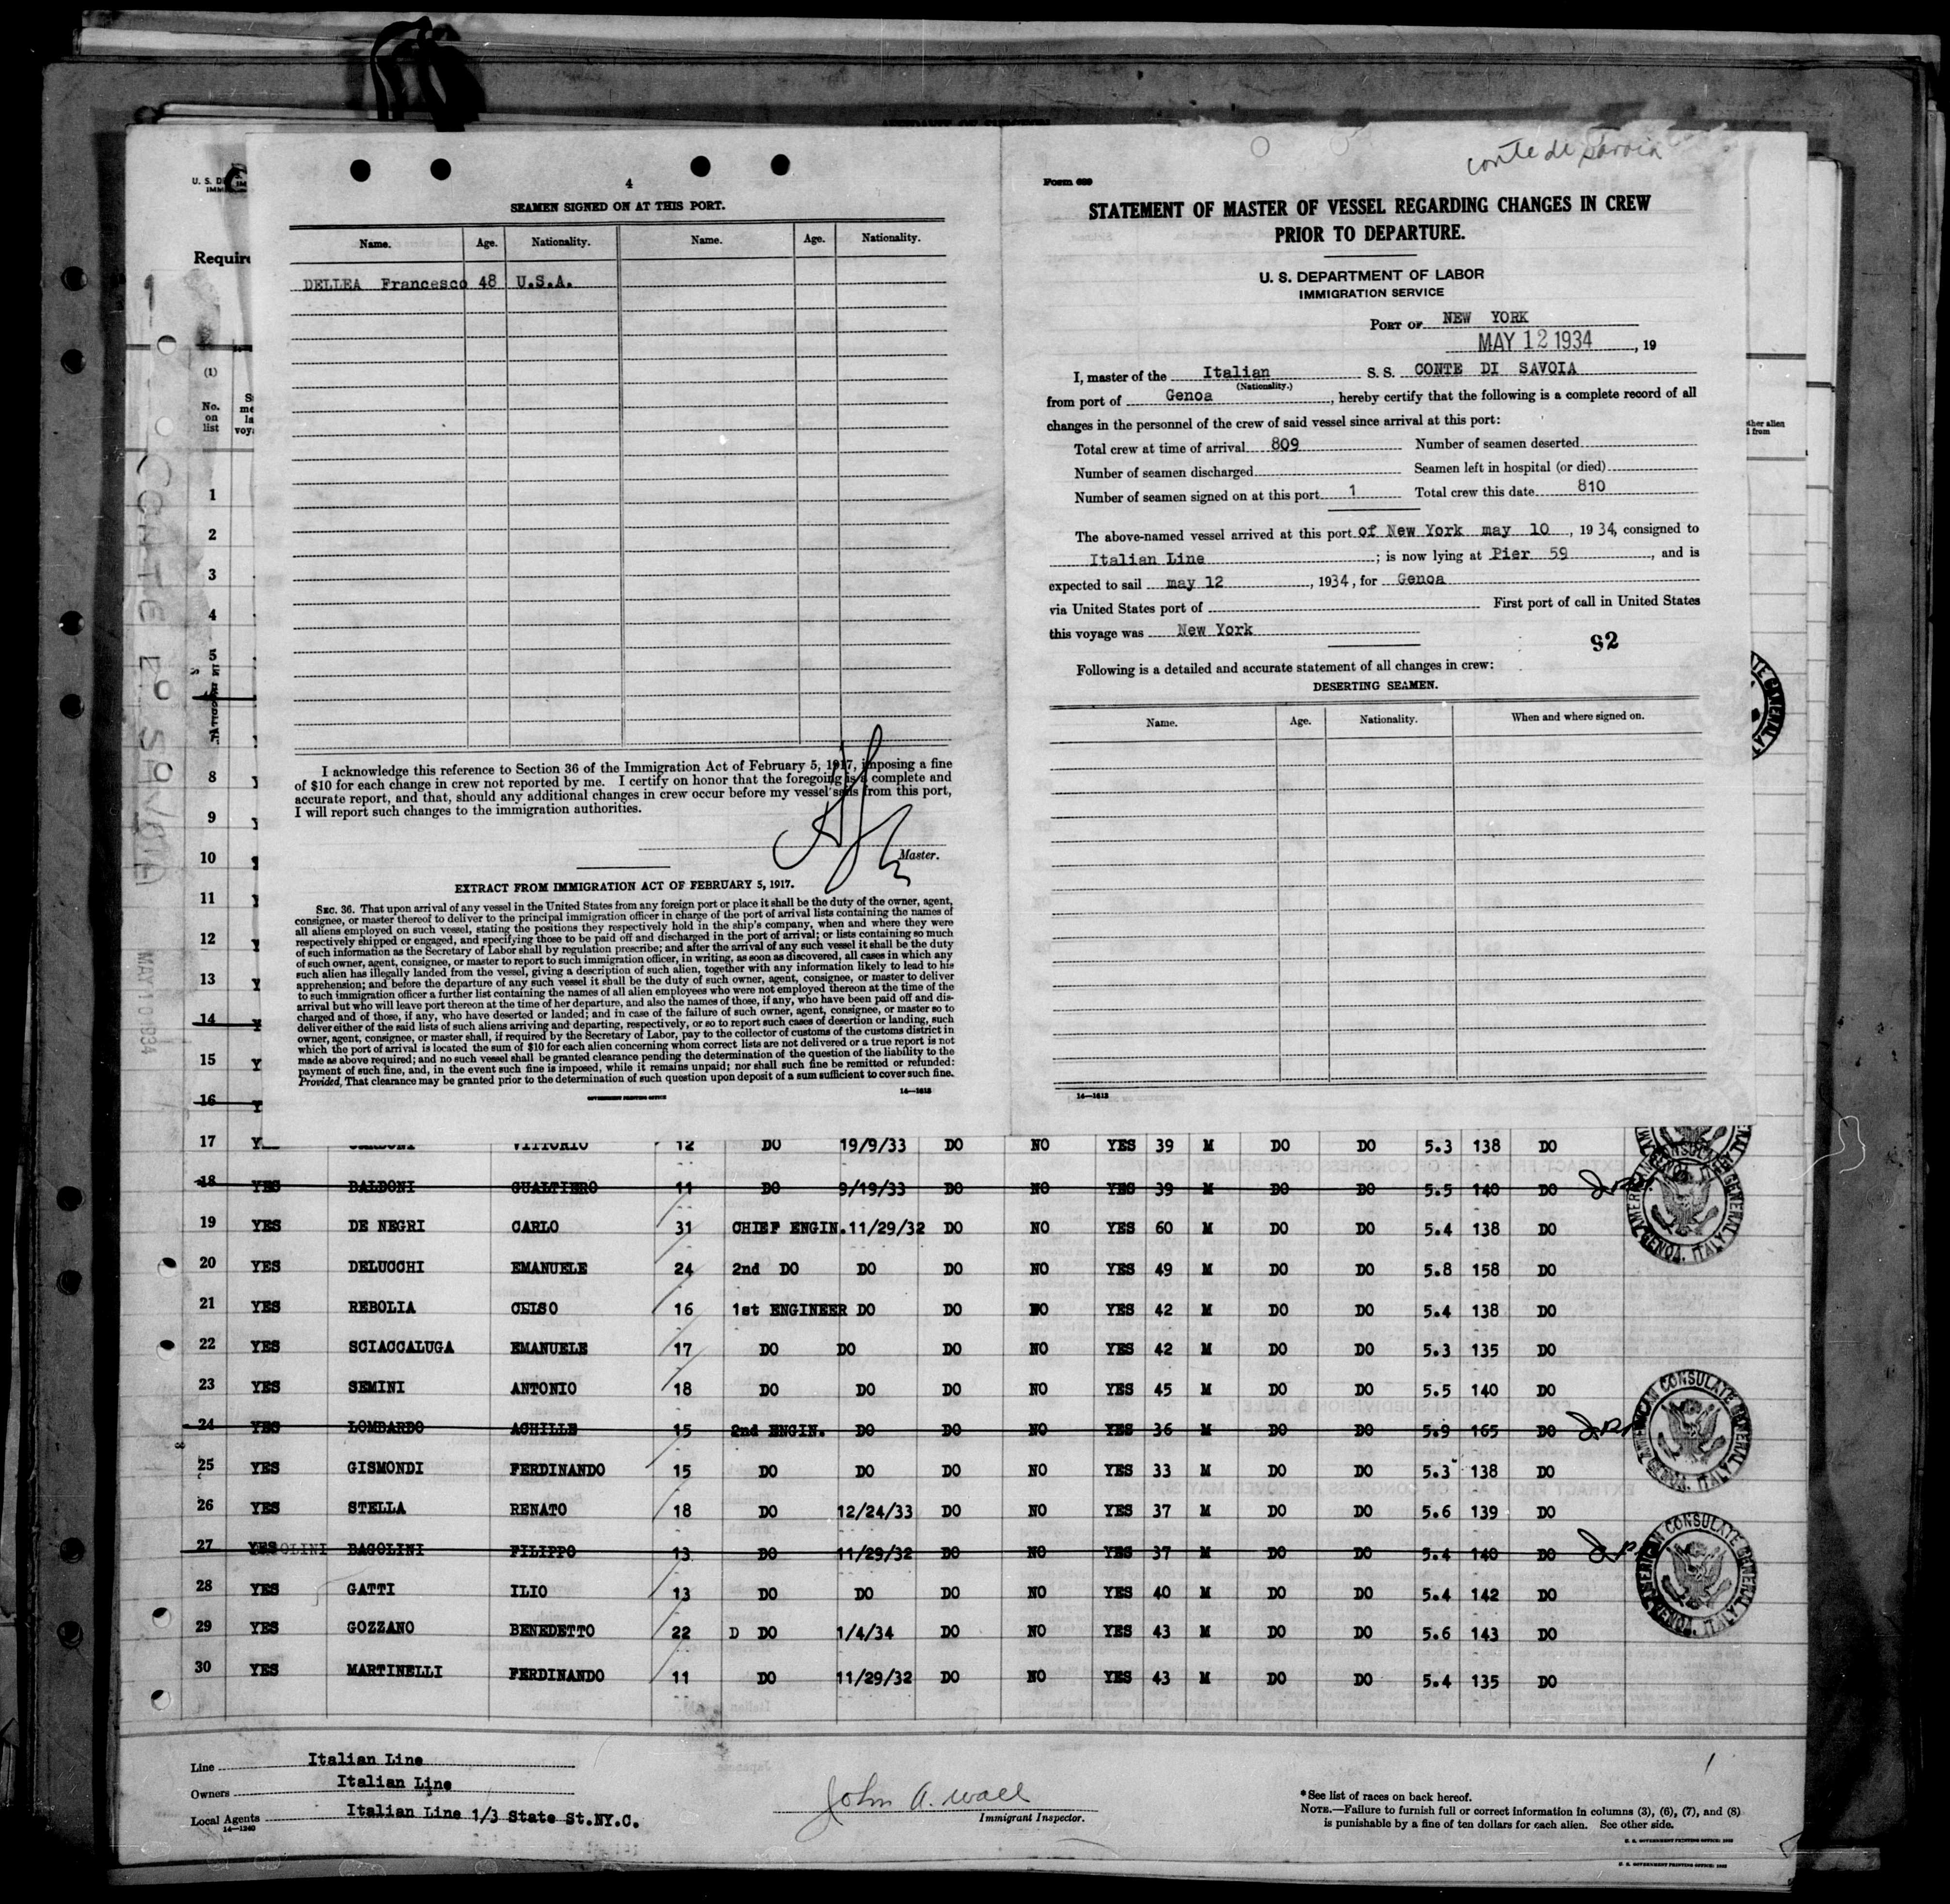 4
SEAMEN SIGNED ON AT THIS PORT.
Name. Age. Nationality. Name. Age. Nationality.
DELLEA Francesco 48 U.S.A.
I acknowledge this reference to Section 36 of the Immigration Act of February 5, 1917, imposing a fine
of $10 for each change in crew not reported by me. I certify on honor that the foregoing is a complete and
accurate report, and that, should any additional changes in crew occur before my vessel sails from this port,
I will report such changes to the immigration authorities.
Master.
EXTRACT FROM IMMIGRATION ACT OF FEBRUARY 5, 1917.
SEC. 36. That upon arrival of any vessel in the United States from any foreign port or place it shall be the duty of the owner, agent,
consignee, or master thereof to deliver to the principal immigration officer in charge of the port of arrival lists containing the names of
all aliens employed on such vessel, stating the positions they respectively hold in the ship's company, when and where they were
respectively shipped or engaged, and specifying those to be paid off and discharged in the port of arrival; or lists containing so much
of such information as the Secretary of Labor shall by regulation prescribe; and after the arrival of any such vessel it shall be the duty
of such owner, agent, consignee, or master to report to such immigration officer, in writing, as soon as discovered, all cases in which any
such alien has illegally landed from the vessel, giving a description of such alien, together with any information likely to lead to his
apprehension; and before the departure of any such vessel it shall be the duty of such owner, agent, consignee, or master to deliver
to such immigration officer a further list containing the names of all alien employees who were not employed thereon at the time of the
arrival but who will leave port thereon at the time of her departure, and also the names of those, if any, who have been paid off and dis-
charged and of those, if any, who have deserted or landed; and in case of the failure of such owner, agent, consignee, or master so to
deliver either of the said lists of such aliens arriving and departing, respectively, or so to report such cases of desertion or landing, such
owner, agent, consignee, or master shall, if required by the Secretary of Labor, pay to the collector of customs of the customs district in
which the port of arrival is located the sum of $10 for each alien concerning whom correct lists are not delivered or a true report is not
made as above required; and no such vessel shall be granted clearance pending the determination of the question of the liability to the
payment of such fine, and, in the event such fine is imposed, while it remains unpaid; nor shall such fine be remitted or refunded:
Provided, That clearance may be granted prior to the determination of such question upon deposit of a sum sufficient to cover such fine.
GOVERNMENT PRINTING OFFICE 14—1613
conte di Savoia
Form 689
STATEMENT OF MASTER OF VESSEL REGARDING CHANGES IN CREW
PRIOR TO DEPARTURE.
U. S. DEPARTMENT OF LABOR
IMMIGRATION SERVICE
PORT OF NEW YORK
MAY 12 1934, 19
I, master of the Italian S. S. CONTE DI SAVOIA
(Nationality.)
from port of Genoa, hereby certify that the following is a complete record of all
changes in the personnel of the crew of said vessel since arrival at this port:
Total crew at time of arrival 809 Number of seamen deserted
Number of seamen discharged Seamen left in hospital (or died)
Number of seamen signed on at this port 1 Total crew this date 810
The above-named vessel arrived at this port of New York may 10, 1934, consigned to
Italian Line; is now lying at Pier 59, and is
expected to sail may 12, 1934, for Genoa
via United States port of First port of call in United States
this voyage was New York
92
Following is a detailed and accurate statement of all changes in crew:
DESERTING SEAMEN.
Name. Age. Nationality. When and where signed on.
14—1613
U. S. D
Require
(1)
No.
on
list
1
2
3
4
5
8
9
10
11
12
13
14
15
16
CONTE DI SAVOIA
MAY 10 1934
17 VITTORIO 12 DO 19/9/33 DO NO YES 39 M DO DO 5.3 138 DO
18 YES BALDONI GUALTIERO 11 DO 9/19/33 DO NO YES 39 M DO DO 5.5 140 DO
19 YES DE NEGRI CARLO 31 CHIEF ENGIN. 11/29/32 DO NO YES 60 M DO DO 5.4 138 DO
20 YES DELUCCHI EMANUELE 24 2nd DO DO DO NO YES 49 M DO DO 5.8 158 DO
21 YES REBOLIA CLISO 16 1st ENGINEER DO DO NO YES 42 M DO DO 5.4 138 DO
22 YES SCIACCALUGA EMANUELE 17 DO DO DO NO YES 42 M DO DO 5.3 135 DO
23 YES SEMINI ANTONIO 18 DO DO DO NO YES 45 M DO DO 5.5 140 DO
24 YES LOMBARDO ACHILLE 15 2nd ENGIN. DO DO NO YES 36 M DO DO 5.9 165 DO
25 YES GISMONDI FERDINANDO 15 DO DO DO NO YES 33 M DO DO 5.3 138 DO
26 YES STELLA RENATO 18 DO 12/24/33 DO NO YES 37 M DO DO 5.6 139 DO
27 YES BAGOLINI FILIPPO 13 DO 11/29/32 DO NO YES 37 M DO DO 5.4 140 DO
28 YES GATTI ILIO 13 DO DO DO NO YES 40 M DO DO 5.4 142 DO
29 YES GOZZANO BENEDETTO 22 D DO 1/4/34 DO NO YES 43 M DO DO 5.6 143 DO
30 YES MARTINELLI FERDINANDO 11 DO 11/29/32 DO NO YES 43 M DO DO 5.4 135 DO
AMERICAN CONSULATE GENERAL
GENOA, ITALY
AMERICAN CONSULATE GENERAL
GENOA, ITALY
AMERICAN CONSULATE GENERAL
GENOA, ITALY
Line Italian Line
Owners Italian Line
Local Agents Italian Line 1/3 State St.NY.C.
14—1240
John A. Wall
Immigrant Inspector.
*See list of races on back hereof.
NOTE.—Failure to furnish full or correct information in columns (3), (6), (7), and (8)
is punishable by a fine of ten dollars for each alien. See other side.